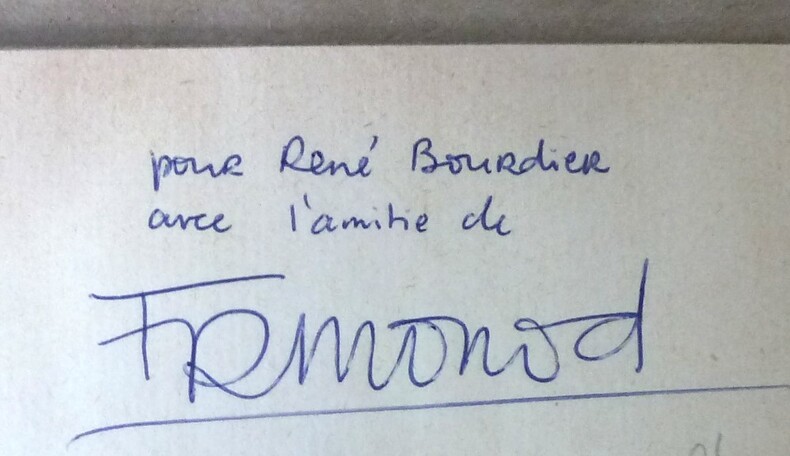 pour René Bourdier
avec l'amitie de
FRMonod